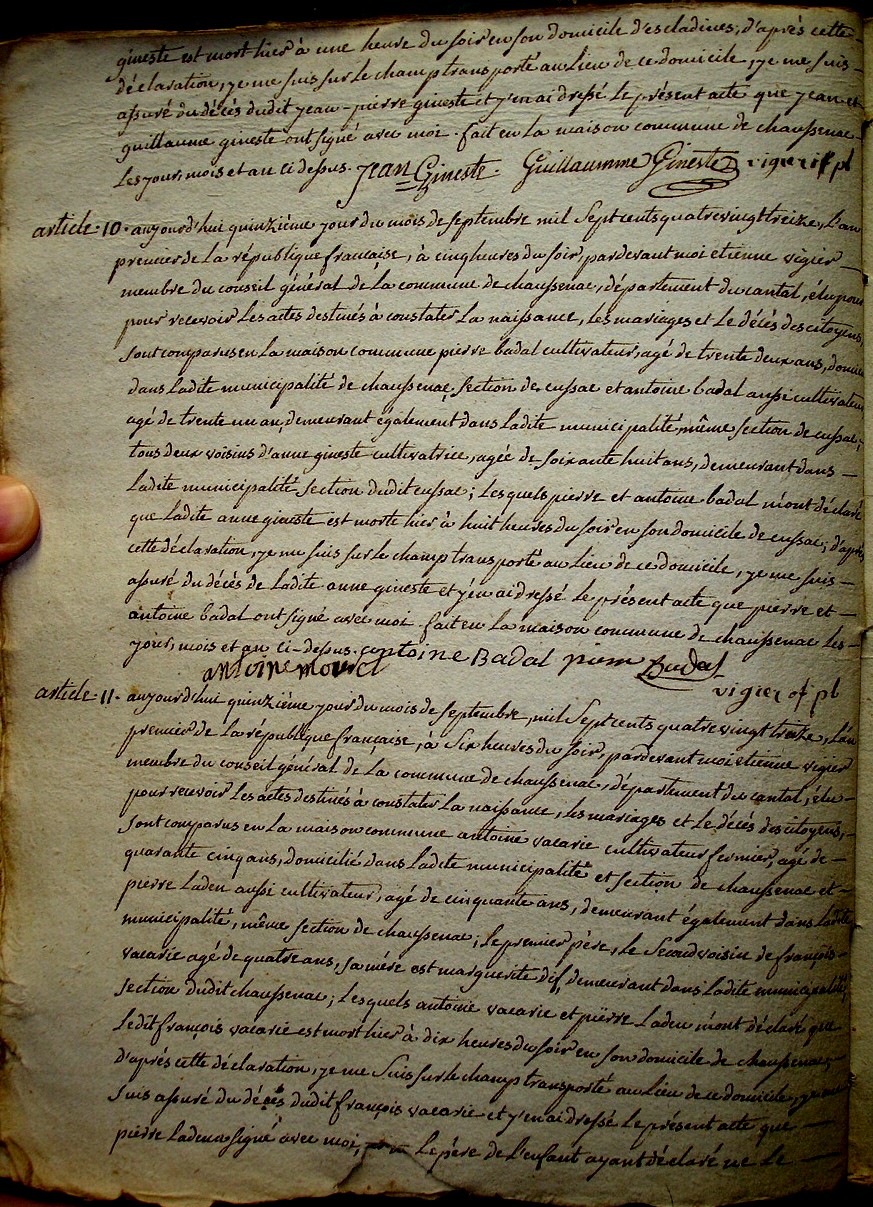 gineste est mort hier à une heure du soir en son domicile d'escladines; d'après cette
déclaration, je me suis sur le champ transporté au lieu de ce domicile, je me suis
assuré du décès dudit jean-pierre gineste et j'en ai dressé le présent acte que jean et
guillaume gineste ont signé avec moi. fait en la maison commune de chaussenac
les jour, mois et an ci dessus. Jean Gineste. Guillaumme Gineste vigier of pl
article 10. aujourd'hui quinzième jour du mois de septembre mil sept cents quatrevingt treize, l'an
premier de la république française, à cinq heures du soir, pardevant moi etienne vigier
membre du conseil général de la commune de chaussenac, département du cantal, élu pour
pour recevoir les actes destinés à constater la naissance, les mariages et le décès des citoyens,
sont comparus en la maison commune pierre badal cultivateur, agé de trente deux ans, domici
dans ladite municipalité de chaussenac, section de cussac et antoine badal aussi cultivateur
agé de trente un an, demeurant également dans ladite municipalité, même section de cussac,
tous deux voisins d'anne gineste cultivatrice, agée de soixante huit ans, demeurant dans
ladite municipalité section dudit cussac; lesquels pierre et antoine badal m'ont déclaré
que ladite anne gineste est morte hier à huit heures du soir en son domicile de cussac; d'après
cette déclaration, je me suis sur le champ transporté au lieu de ce domicile, je me suis
assuré du décès de ladite anne gineste et j'en ai dressé le présent acte que pierre et
antoine badal ont signé avec moi. fait en la maison commune de chaussenac les
jour, mois et an ci-dessus. antoine Badal pierre Badal
antoine vigier of pl
article 11. aujourd'hui quinzième jour du mois de septembre, mil sept cents quatre vingt treize, l'an
premier de la république française, à six heures du soir, pardevant moi etienne vigier
membre du conseil général de la commune de chaussenac, département du cantal, élu
pour recevoir les actes destinés à constater la naissance, les mariages et le décès des citoyens,
sont comparus en la maison commune antoine vacarie cultivateur fermier, agé de
quarante cinq ans, domicilié dans ladite municipalité et section de chaussenac et
pierre laden aussi cultivateur, agé de cinquante ans, demeurant également dans ladite
municipalité, même section de chaussenac; le premier père, le second voisin de françois
vacarie agé de quatre ans, sa mère est marguerite dif, demeurant dans ladite municipalité,
section dudit chaussenac; lesquels antoine vacarie et pierre laden m'ont déclaré que
ledit françois vacarie est mort hier à dix heures du soir en son domicile de chaussenac;
d'après cette déclaration, je me suis sur le champ transporté au lieu de ce domicile, je me
suis assuré du décès dudit françois vacarie et j'en ai dressé le présent acte que
pierre laden a signé avec moi, le père de l'enfant ayant déclaré ne le